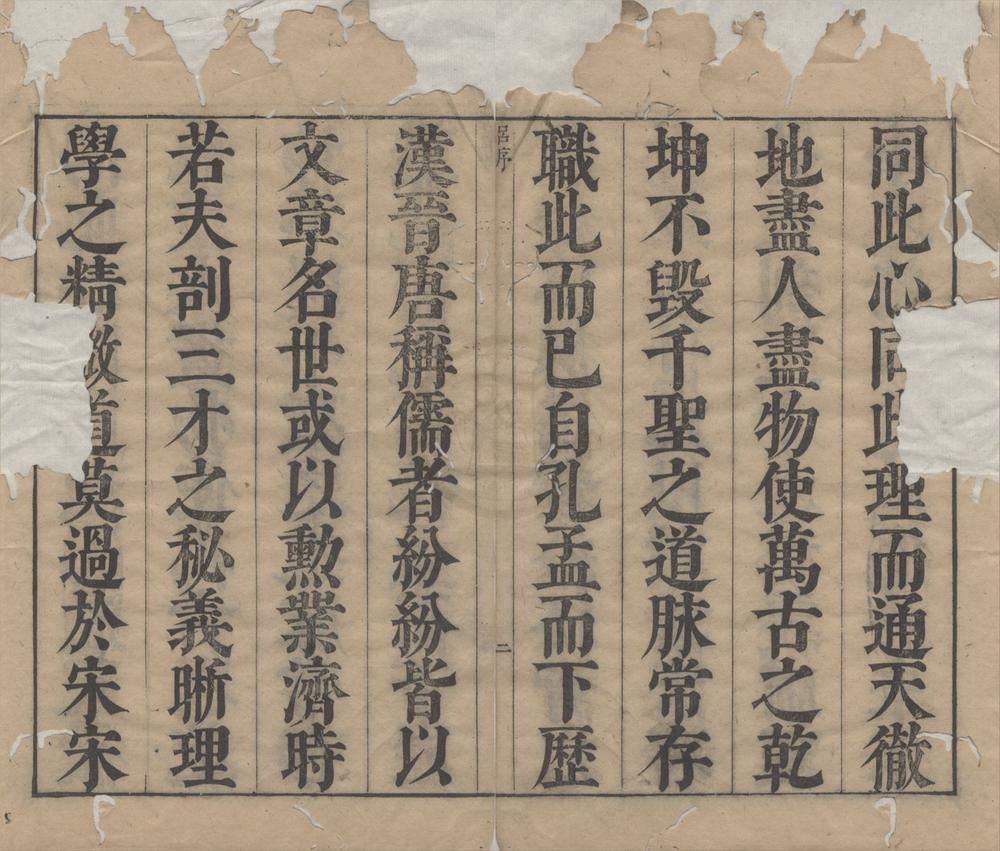 同此心同此理而通天徹
地盡人盡物使萬古之乾
坤不毀千聖之道脉常存
職此而已自孔孟而下歷
呂序
二
漢晉唐稱儒者紛紛皆以
文章名世或以勲業濟時
若夫剖三才之秘義晰理
學之精微道莫過於宋宋